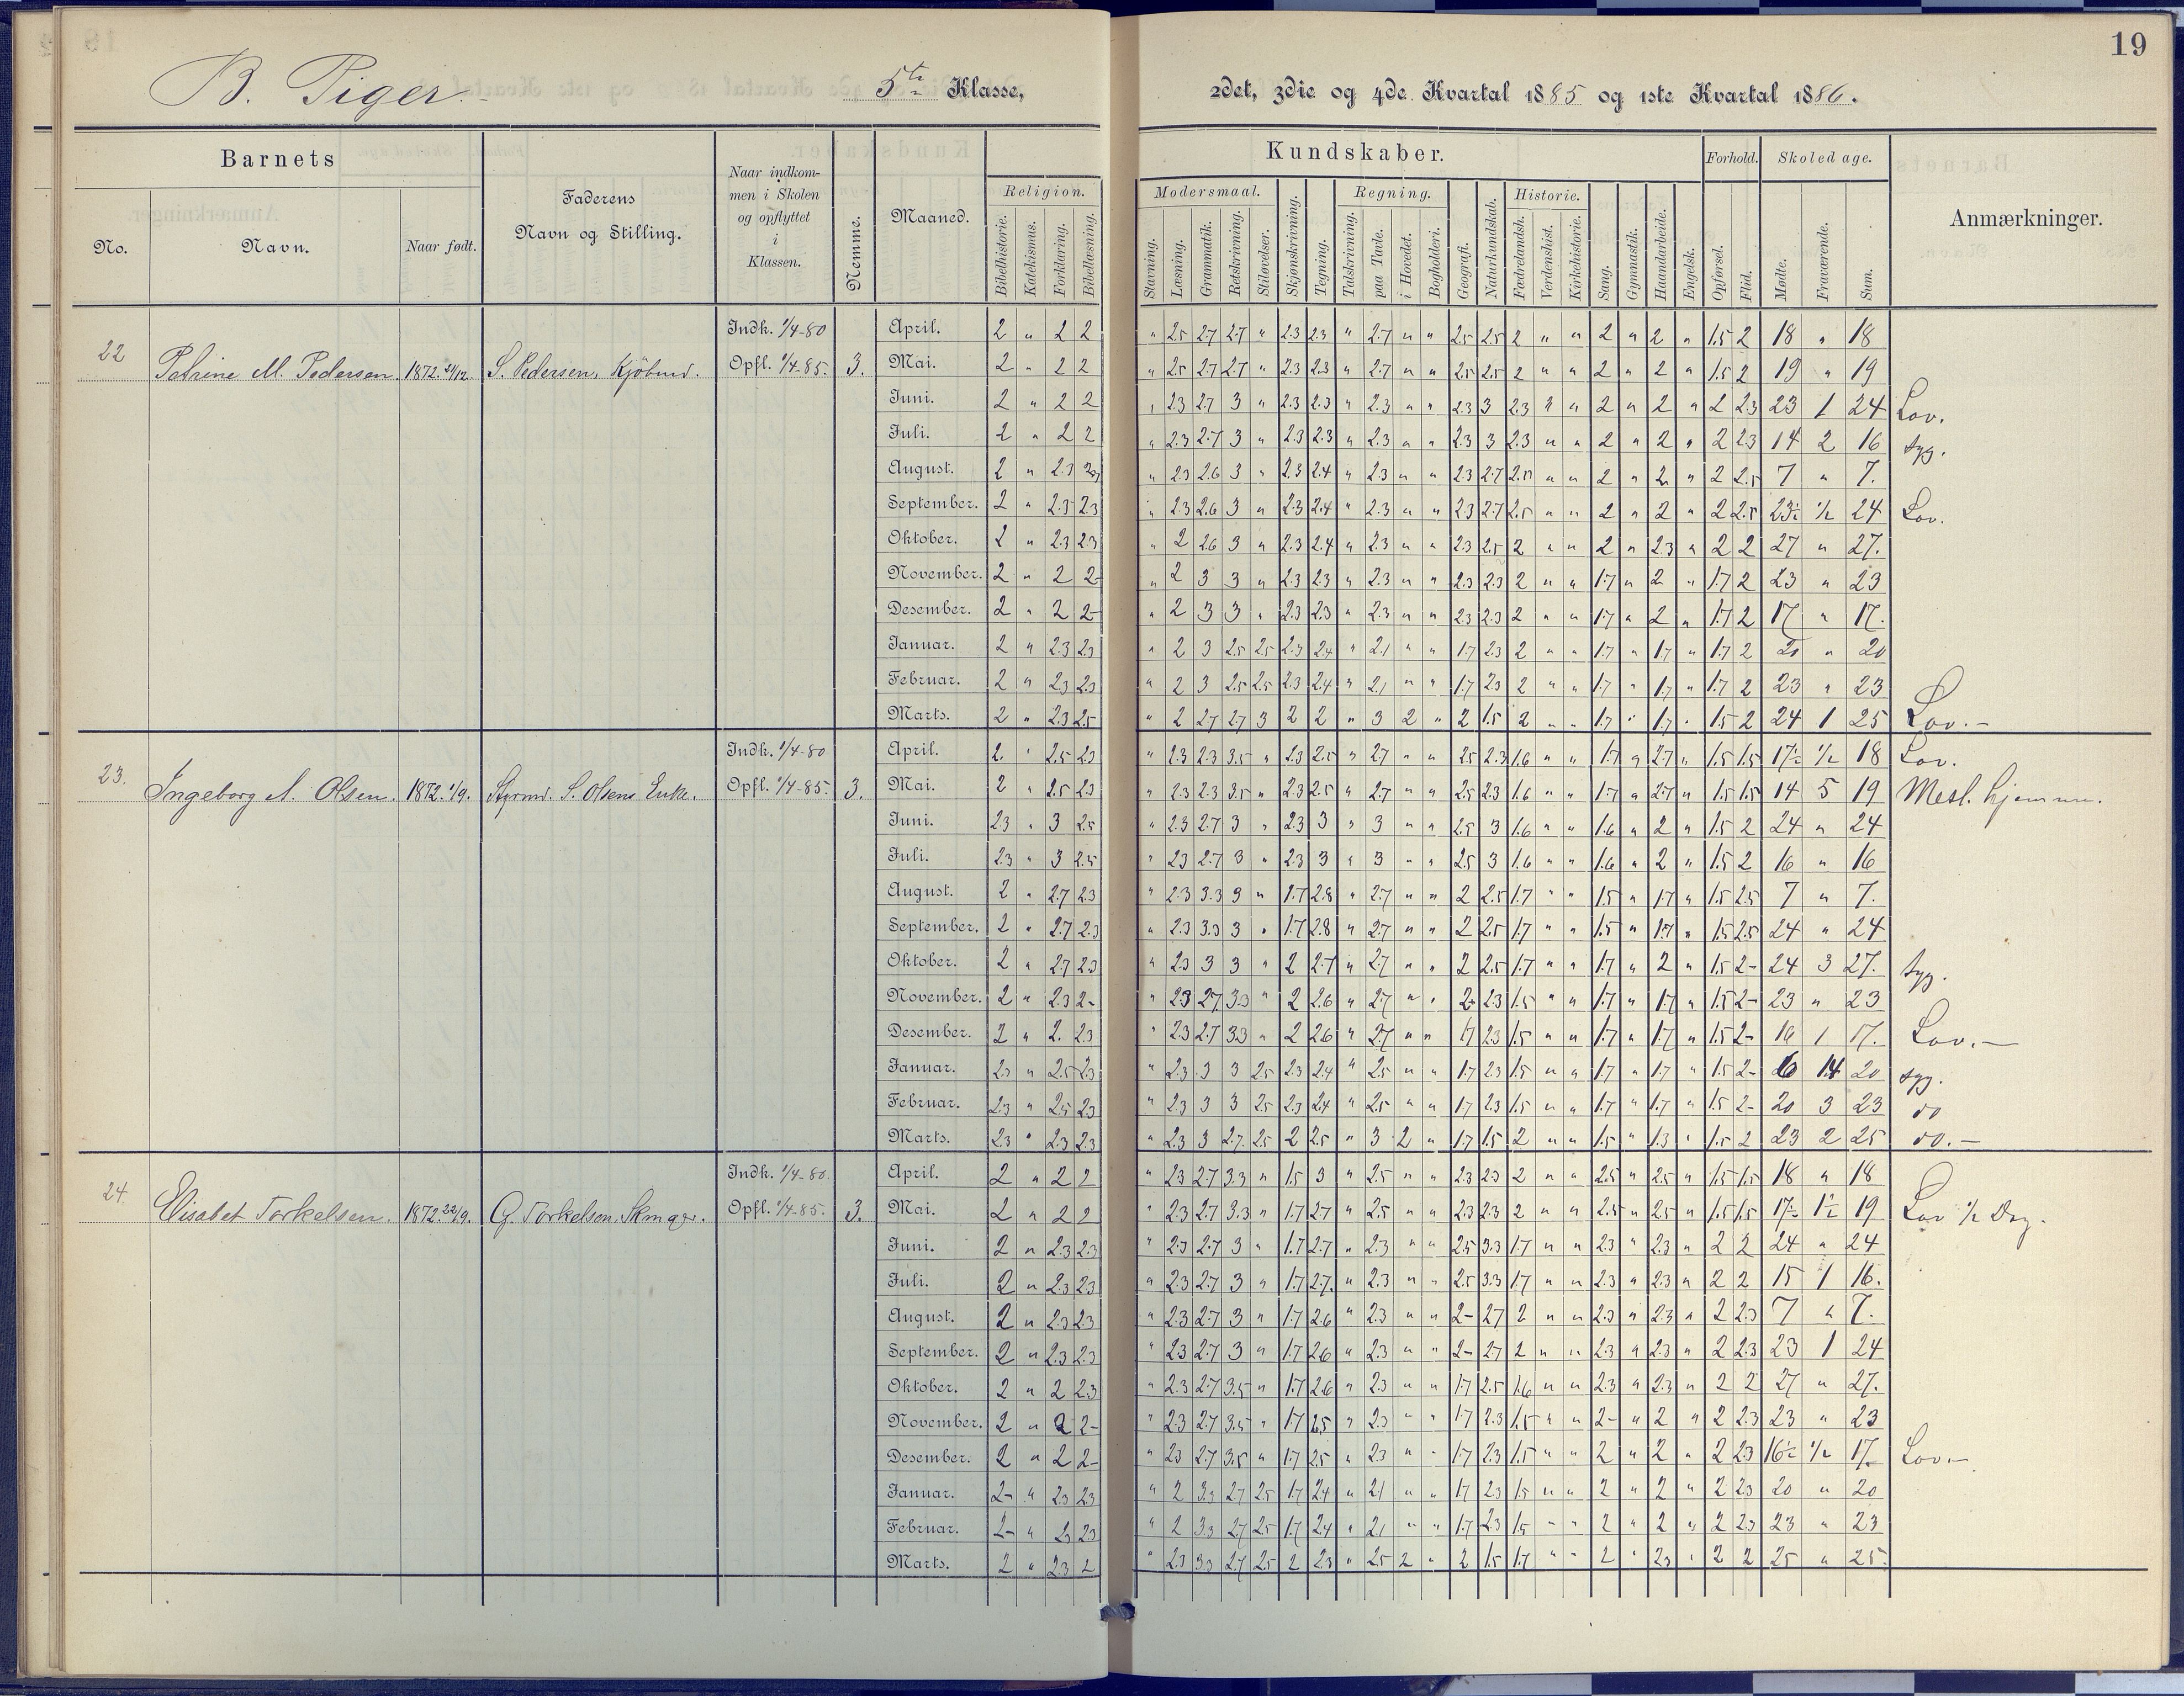 19
B. Piger
5te Klasse,
2det, 3die og 4de Kvartal 1885 og 1ste Kvartal 1886.
Barnets
Faderens
Navn og Stilling.
Naar indkom-
men i Skolen
og opflyttet
i
Klassen.
Nemme.
Maaned.
Kundskaber.
Forhold.
Skoledage.
Anmærkninger.
No.
Navn.
Naar født.
Religion.
Modersmaal.
Regning.
Historie.
Bibelhistorie.
Katekismus.
Forklaring.
Bibellæsning.
Stavning.
Læsning.
Grammatik.
Retskrivning.
Stiløvelser.
Skjønskrivning.
Tegning.
Talskrivning.
paa Tavle.
i Hovedet.
Bogholderi.
Geografi.
Naturkundskab.
Fædrelandsh.
Verdenshist.
Kirkehistorie.
Sang.
Gymnastik.
Haandarbeide.
Engelsk.
Opførsel.
Flid.
Mødte.
Fraværende.
Sum.
22 Petrine M. Pedersen 1872. 21/12. S. Pedersen, Kjøbmd. Indk. 1/4-80 Opfl. 1/4-85. 3.
April. 2 " 2 2 " 2.5 2.7 2.7 " 2.3 2.3 " 2.7 " " 2.5 2.5 2 " " 2 " 2 " 1.5 2 18 " 18
Mai. 2 " 2 2 " 2.5 2.7 2.7 " 2.3 2.3 " 2.7 " " 2.5 2.5 2 " " 2 " 2 " 1.5 2 19 " 19
Juni. 2 " 2 2 " 2.3 2.7 3 " 2.3 2.3 " 2.3 " " 2.3 3 2.3 " " 2 " 2 " 2 2.3 23 1 24 Lov.
Juli. 2 " 2 2 " 2.3 2.7 3 " 2.3 2.3 " 2.3 " " 2.3 3 2.3 " " 2 " 2 " 2 2.3 14 2 16 syg.
August. 2 " 2.3 " 2.3 2.6 3 " 2.3 2.4 " 2.3 " " 2.3 2.7 2.5 " " 2 " 2 " 2 2.5 7 " 7.
September. 2 " 2.3 2.3 " 2.3 2.6 3 " 2.3 2.4 " 2.3 " " 2.3 2.7 2.5 " " 2 " 2 " 2 2.5 23½ ½ 24 Lov.
Oktober. 2 " 2.3 2.3 " 2 2.6 3 " 2.3 2.4 " 2.3 " " 2.3 2.5 2 " " 2 " 2.3 " 2 2 27 " 27.
November. 2 " 2 2- " 2 3 3 " 2.3 2.3 " 2.3 " " 2.3 2.3 2 " " 1.7 " 2 " 1.7 2 23 " 23
Desember. 2 " 2 2- " 2 3 3 " 2.3 2.3 " 2.3 " " 2.3 2.3 2 " " 1.7 " 2 " 1.7 2 17 " 17.
Januar. 2 " 2.3 2.3 " 2 3 2.5 2.5 2.3 2.4 " 2.1 " " 1.7 2.3 2 " " 1.7 " 1.7 " 1.7 2 20 " 20
Februar. 2 " 2.3 2.3 " 2 3 2.5 2.5 2.3 2.4 " 2.1 " " 1.7 2.3 2 " " 1.7 " 1.7 " 1.7 2 23 " 23
Marts. 2 " 2.3 2.5 " 2 2.7 2.7 3 2 2 " 3 2 " 2 1.5 2 " " 1.7 " 1.7 " 1.5 2 24 1 25 Lov.-
23. Ingeborg A. Olsen. 1872. 1/9. Styrmd. S. Olsens Enke. Indk. 1/4-80 Opfl. 1/4-85. 3.
April. 2. " 2.5 2.3 " 2.3 2.3 3.5 " 2.3 2.5 " 2.7 " " 2.5 2.3 1.6 " " 1.7 " 2.7 " 1.5 1.5 17½ ½ 18 Lov.
Mai. 2 " 2.5 2.3 " 2.3 2.3 3.5 " 2.3 2.5 " 2.7 " " 2.5 2.3 1.6 " " 1.7 " 2.7 " 1.5 1.5 14 5 19 Mesl. hjemme.
Juni. 2.3 " 3 2.5 " 2.3 2.7 3 " 2.3 3 " 3 " " 2.5 3 1.6 " " 1.6 " 2 " 1.5 2 24 " 24
Juli. 2.3 " 3 2.5 " 2.3 2.7 3 " 2.3 3 " 3 " " 2.5 3 1.6 " " 1.6 " 2 " 1.5 2 16 " 16
August. 2 " 2.7 2.3 " 2.3 3.3 3 " 1.7 2.8 " 2.7 " " 2 2.5 1.7 " " 1.5 " 1.7 " 1.5 2.5 7 " 7.
September. 2 " 2.7 2.3 " 2.3 3.3 3 " 1.7 2.8 " 2.7 " " 2 2.5 1.7 " " 1.5 " 1.7 " 1.5 2.5 24 " 24
Oktober. 2 " 2.7 2.3 " 2.3 3 3 " 2 2.7 " 2.7 " " 2 2.5 1.7 " " 1.7 " 2 " 1.5 2- 24 3 27. syg.
November. 2 " 2.3 2- " 2.3 2.7 3.3 " 2 2.6 " 2.7 " " 2- 2.3 1.5 " " 1.7 " 1.7 " 1.5 2- 23 " 23
Desember. 2 " 2. 2.3 " 2.3 2.7 3.3 " 2 2.6 " 2.7 " " 1.7 2.3 1.5 " " 1.7 " 1.7 " 1.5 2- 16 1 17. Lov.-
Januar. 2.3 " 2.5 2.3 " 2.3 3 3 2.5 2.3 2.4 " 2.5 " " 1.7 2.3 1.5 " " 1.7 " 1.7 " 1.5 2- 6 14 20 syg.
Februar. 2.3 " 2.5 2.3 " 2.3 3 3 2.5 2.3 2.4 " 2.5 " " 1.7 2.3 1.5 " " 1.7 " 1.7 " 1.5 2- 20 3 23 do
Marts. 2.3 " 2.3 2.3 " 2.3 3 2.7 2.5 2 2.5 " 3 2 " 1.7 1.5 2 " " 1.5 " 1.3 " 1.5 2 23 2 25 do.-
24. Elisabet Torkelsen. 1872. 22/9. G. Torkelsen, Indk. 1/4-80. Opfl. 1/4-85. 3.
April. 2 " 2 2 " 2.3 2.7 3.3 " 1.5 3 " 2.5 " " 2.3 2.3 2 " " 2.5 " 2.5 " 1.5 1.5 18 " 18
Mai. 2 " 2 2 " 2.3 2.7 3.3 " 1.7 2.7 " 2.5 " " 2.3 2.3 2 " " 2.5 " 2.5 " 1.5 1.5 17½ 1½ 19 Lov ½ Dag.
Juni. 2 " 2.3 2.3 " 2.3 2.7 3 " 1.7 2.7 " 2.3 " " 2.5 3.3 1.7 " " 2.3 " 2.3 " 2 2 24 " 24
Juli. 2 " 2.3 2.3 " 2.3 2.7 3 " 1.7 2.7. " 2.3 " " 2.5 3.3 1.7 " " 2.3 " 2.3 " 2 2 15 1 16.
August. 2 " 2.3 2.3 " 2.3 2.7 3 " 1.7 2.6 " 2.3 " " 2- 2.7 2 " " 2.3 " 2.3 " 2 2.3 7 " 7.
September. 2 " 2.3 2.3 " 2.3 2.7 3 " 1.7 2.6 " 2.3 " " 2- 2.7 2 " " 2.3 " 2.3 " 2 2.3 23 1 24
Oktober. 2 " 2 2.3 " 2.3 2.7 3.5 " 1.7 2.6 " 2.3 " " 1.7 2.5 1.6 " " 2.3 " 2.3 " 2 2 27 " 27.
November. 2 " 2 2- " 2.3 2.7 3.5 " 1.7 2.5 " 2.3 " " 1.7 2.3 1.5 " " 2- " 2 " 2 2.3 23 " 23
Desember. 2 " 2 2- " 2.3 2.7 3.5 " 1.7 2.5 " 2.3 " " 1.7 2.3 1.5 " " 2 " 2 " 2 2.3 16½ ½ 17. Lov.-
Januar. 2- " 2.3 2.3 " 2 3.3 2.7 2.5 1.7 2.4 " 2.1 " " 1.7 2.3 1.5 " " 2 " 2 " 2 2.3 20 " 20
Februar. 2- " 2.3 2.3 " 2 3.3 2.7 2.5 1.7 2.4 " 2.1 " " 1.7 2.3 1.5 " " 2 " 2 " 2 2.3 23 " 23
Marts. 2 " 2.3 2 " 2.3 3.3 2.7 2.5 2 2.3 " 2.5 2 " 2 1.5 1.7 " " 2 " 2.3 " 2 2 25 " 25.